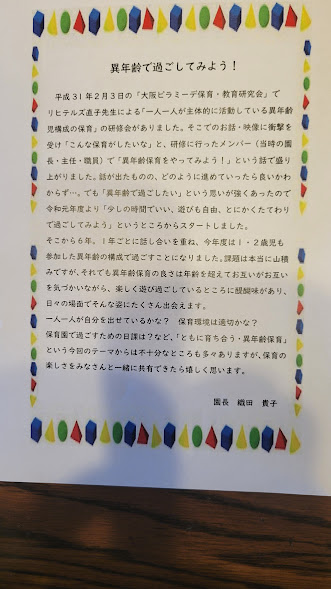 異年齢で過ごしてみよう！
平成31年2月3日の「大阪ピラミーデ保育・教育研究会」で
リヒテルズ直子先生による「一人一人が主体的に活動している異年齢
児構成の保育」の研修会がありました。そこでのお話・映像に衝撃を
受け「こんな保育がしたいな」と、研修に行ったメンバー（当時の園
長・主任・職員）で「異年齢保育をやってみよう！」という話で盛り
上がりました。話が出たものの、どのように進めていったら良いかわ
からず…。でも「異年齢で過ごしたい」という思いが強くあったので
令和元年度より「少しの時間でいい、遊びも自由、とにかくたてわり
で過ごしてみよう」というところからスタートしました。
そこから6年。1年ごとに話し合いを重ね、今年度は1・2歳児も
参加した異年齢の構成で過ごすことになりました。課題は本当に山積
みですが、それでも異年齢保育の良さは年齢を超えてお互いがお互い
を気づかいながら、楽しく遊び過ごしているところに醍醐味があり、
日々の場面でそんな姿にたくさん出会えます。
一人一人が自分を出せているかな？　保育環境は適切かな？
保育園で過ごすための日課は？など、「ともに育ち合う・異年齢保育」
という今回のテーマからは不十分なところも多々ありますが、保育の
楽しさをみなさんと一緒に共有できたら嬉しく思います。
園長　織田　貴子